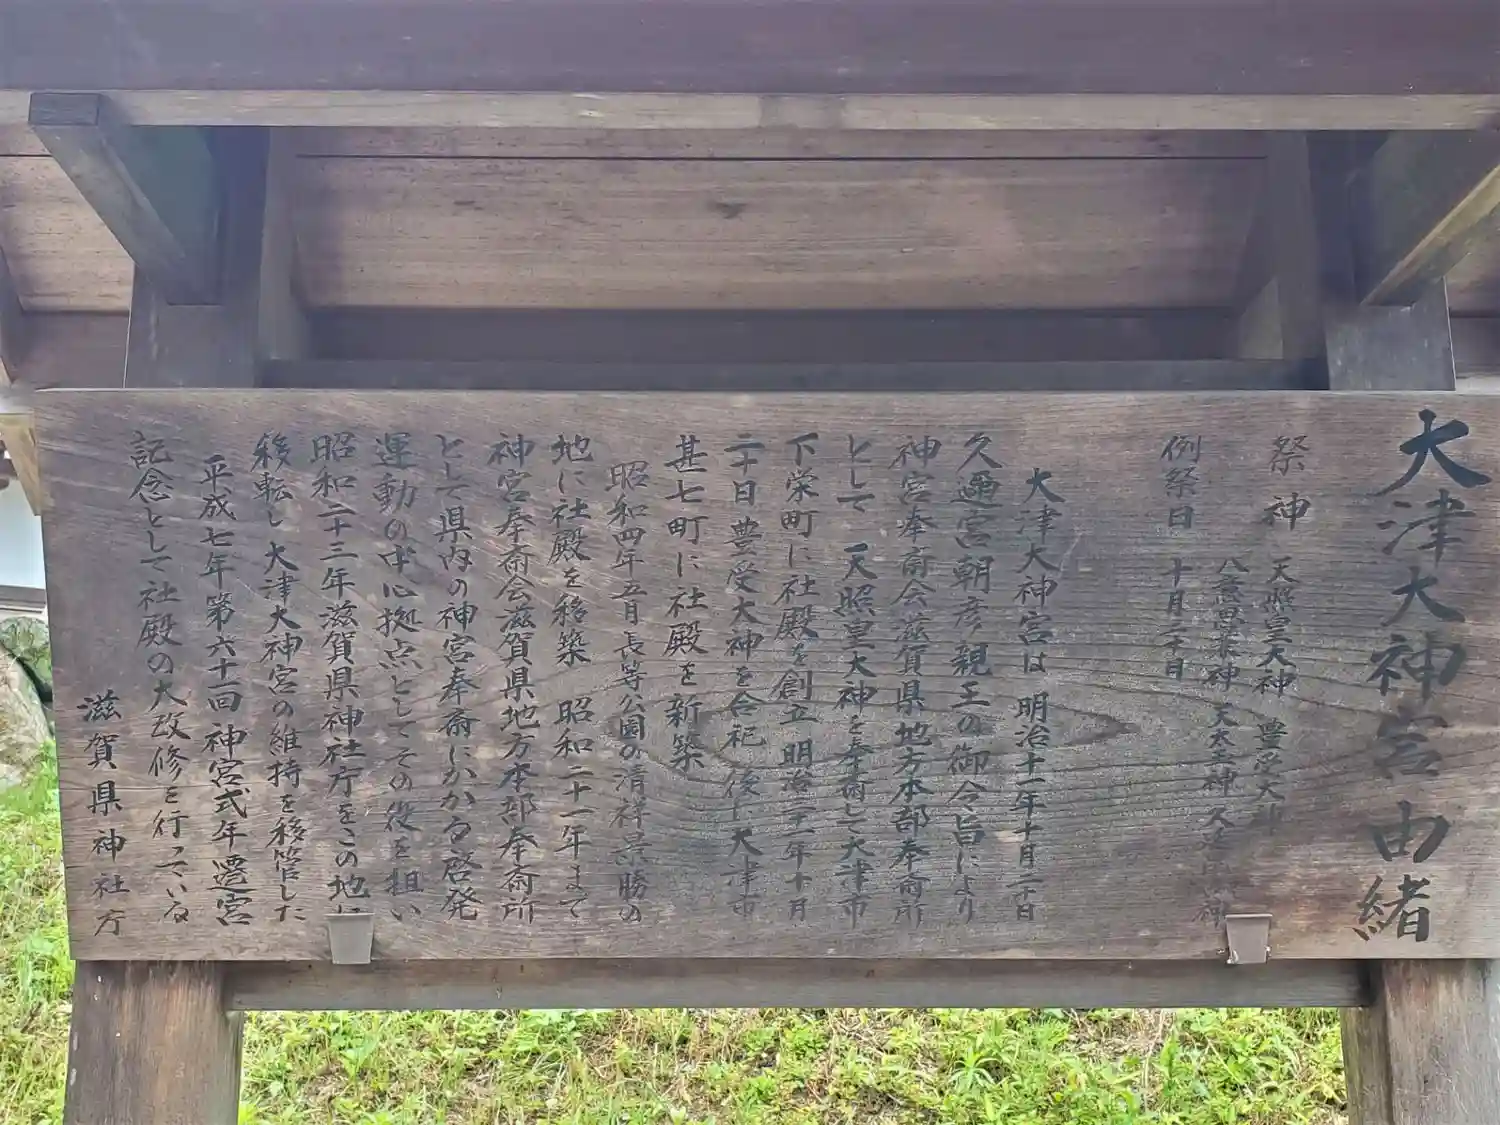 大津大神宮由緒
祭神 天照皇大神 豊受大神
八意思兼神 天太玉神
例祭日 十月二十日
大津大神宮は 明治十一年十月二十日
久邇宮朝彦親王の御令旨により
神宮奉斎会滋賀県地方本部奉斎所
として 天照皇大神を奉斎して大津市
下栄町に社殿を創立 明治三十一年十月
二十日豊受大神を合祀 後に大津市
甚七町に社殿を新築
昭和四年五月長等公園の清祥景勝の
地に社殿を移築 昭和二十一年まで
神宮奉斎会滋賀県地方本部奉斎所
として県内の神宮奉斎にかかる啓発
運動の中心拠点としてその役を担い
昭和二十三年滋賀県神社庁をこの地に
移転し大津大神宮の維持を移管した
平成七年第六十一回神宮式年遷宮
記念として社殿の大改修を行っている
滋賀県神社庁